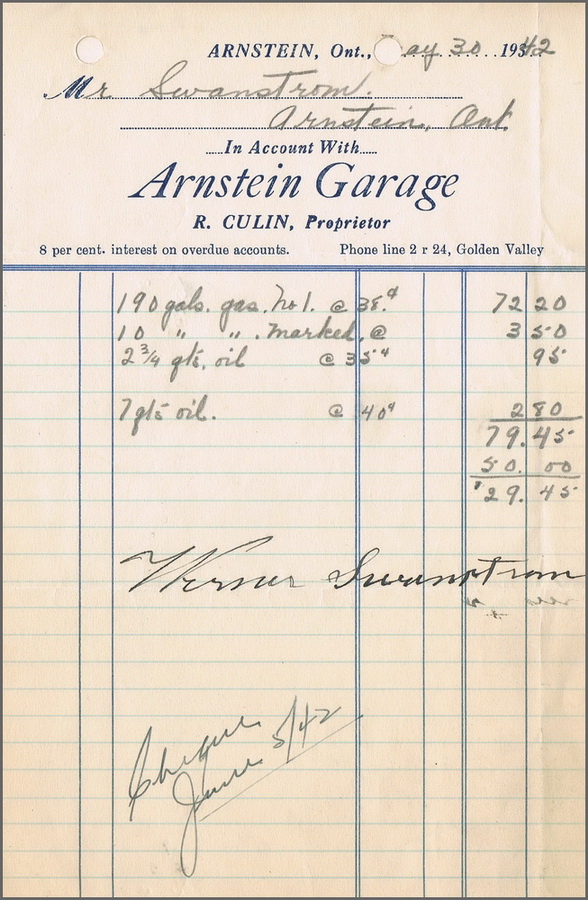 ARNSTEIN, Ont., May 30 1942
Mr Swanstrom.
Arnstein, Ont.
In Account With
Arnstein Garage
R. CULIN, Proprietor
8 per cent. interest on overdue accounts. Phone line 2 r 24, Golden Valley
190 gals. gas. No 1. @ 38.¢ 72 20
10 " " . marked. @ 3 50
2 3/4 qts. oil @ 35¢ 95
7 qts oil. @ 40¢ 2 80
79.45
50.00
29.45
Verner Swanstrom
Cheque
June 5/42